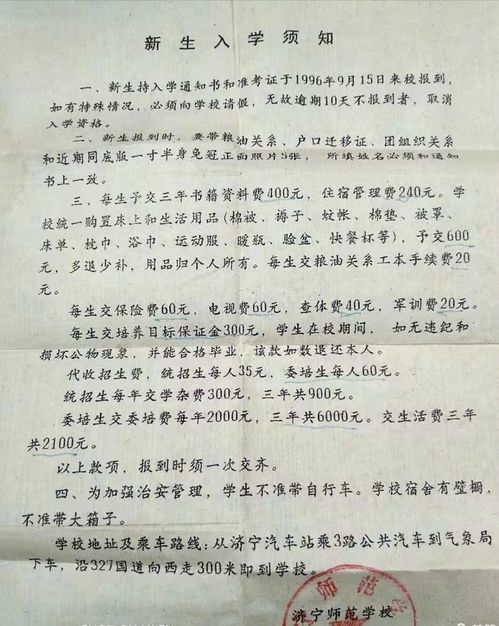 新生入学须知
一、新生持入学通知书和准考证于1996年9月15日来校报到，
如有特殊情况，必须向学校请假，无故逾期10天不报到者，取消
入学资格。
二、新生报到时，要带粮油关系、户口迁移证、团组织关系
和近期同底版一寸半身免冠正面照片5张，所填姓名必须和通知
书上一致。
三、每生予交三年书籍资料费400元，住宿管理费240元。学
校统一购置床上和生活用品(棉被、褥子、蚊帐、棉垫、被罩、
床单、枕巾、浴巾、运动服、暖瓶、脸盆、快餐杯等)，予交600
元，多退少补，用品归个人所有。每生交粮油关系工本手续费20
元。
每生交保险费60元，电视费60元，查体费40元，军训费20元。
每生交培养目标保证金300元，学生在校期间，如无违纪和
损坏公物现象，并能合格毕业，该款如数退还本人。
代收招生费，统招生每人35元，委培生每人60元。
统招生每年交学杂费300元，三年共900元。
委培生交委培费每年2000元，三年共6000元。交生活费三年
共2100元。
以上款项，报到时须一次交齐。
四、为加强治安管理，学生不准带自行车。学校宿舍有壁橱，
不准带大箱子。
学校地址及乘车路线：从济宁汽车站乘3路公共汽车到气象局
下车，沿327国道向西走300米即到学校。
师范
济宁师范学校